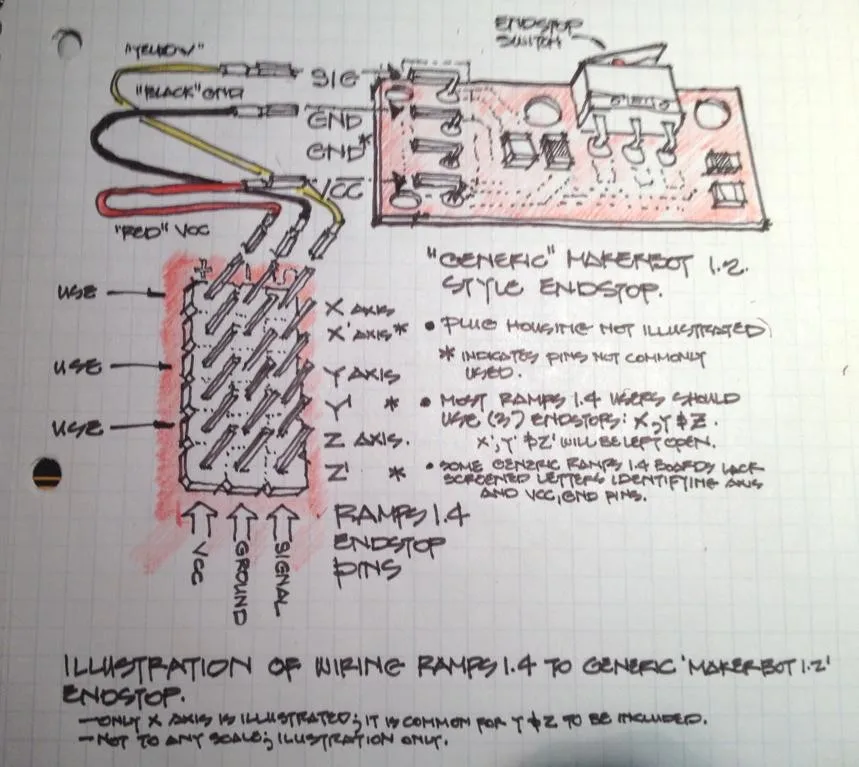 "YELLOW"
"BLACK" GND
"RED" VCC
SIG
GND
GND*
VCC
ENDSTOP
SWITCH
"GENERIC" MAKERBOT 1.2
STYLE ENDSTOP.
+ - S
USE
USE
USE
X AXIS
X' AXIS*
Y AXIS
Y' *
Z AXIS.
Z' *
VCC
GROUND
SIGNAL
RAMPS 1.4
ENDSTOP
PINS
• PLUG HOUSING NOT ILLUSTRATED)
* INDICATES PINS NOT COMMONLY
USED.
• MOST RAMPS 1.4 USERS SHOULD
USE (3) ENDSTOPS: X, Y & Z.
X', Y' & Z' WILL BE LEFT OPEN.
• SOME GENERIC RAMPS 1.4 BOARDS LACK
SCREENED LETTERS IDENTIFYING AXIS
AND VCC, GND PINS.
ILLUSTRATION OF WIRING RAMPS 1.4 TO GENERIC 'MAKERBOT 1.2'
ENDSTOP.
- ONLY X AXIS IS ILLUSTRATED; IT IS COMMON FOR Y & Z TO BE INCLUDED.
- NOT TO ANY SCALE; ILLUSTRATION ONLY.